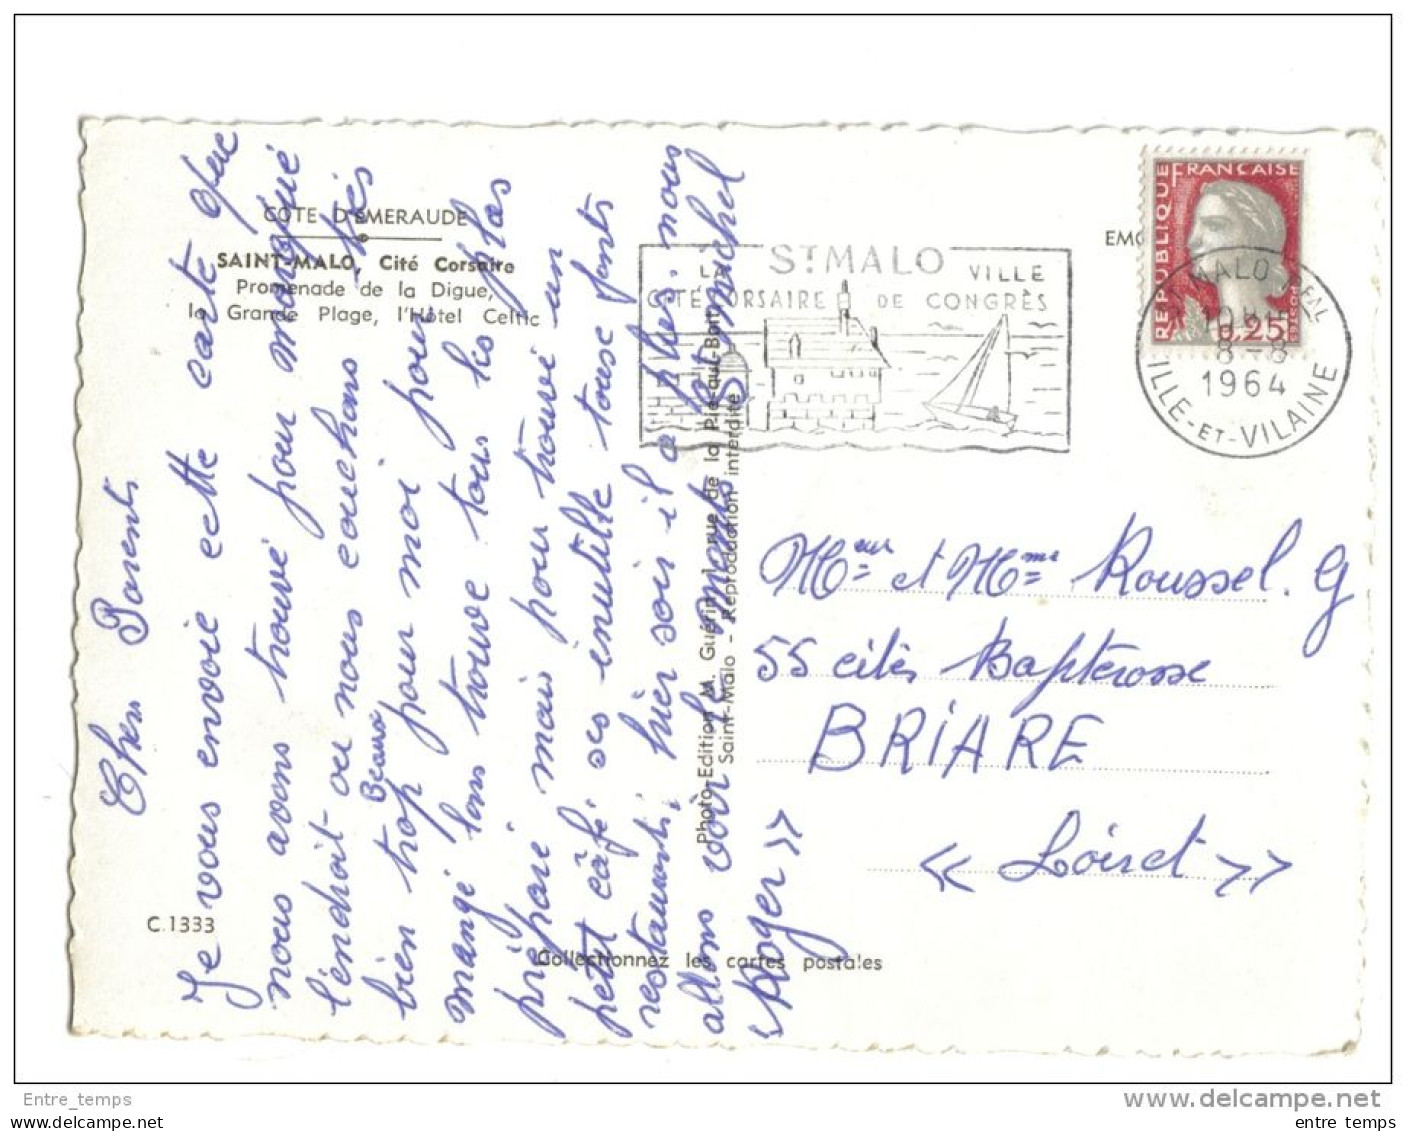 COTE D'EMERAUDE
SAINT-MALO, Cité Corsaire
Promenade de la Digue,
la Grande Plage, l'Hôtel Celtic
Chers Parents
Je vous envoie cette carte que
nous avons trouvé pour
l'endroit ou nous couchons très
Beau
bien trop pour moi pour
mangé tons trouve tous les plas
préparé mais pour trouvé un
petit câfé ses inutille touse
restaurant, hier soir il a plus. nous
allons voir le mont St michel
"Roger"
C.1333
Photo-Edition M. Guérin 1, rue de la Pie-qui-Boit
Saint-Malo - Reproduction interdite
Collectionnez les cartes postales
ST MALO
LA VILLE
CITÉ CORSAIRE DE CONGRÈS
REPUBLIQUE FRANÇAISE
0,25
DECARIS
ST MALO
8-8
1964
ILLE-ET-VILAINE
Meur et Mme Roussel. G
55 cités Baptérosse
BRIARE
« Loiret »
Entre_temps
www.delcampe.net
entre temps